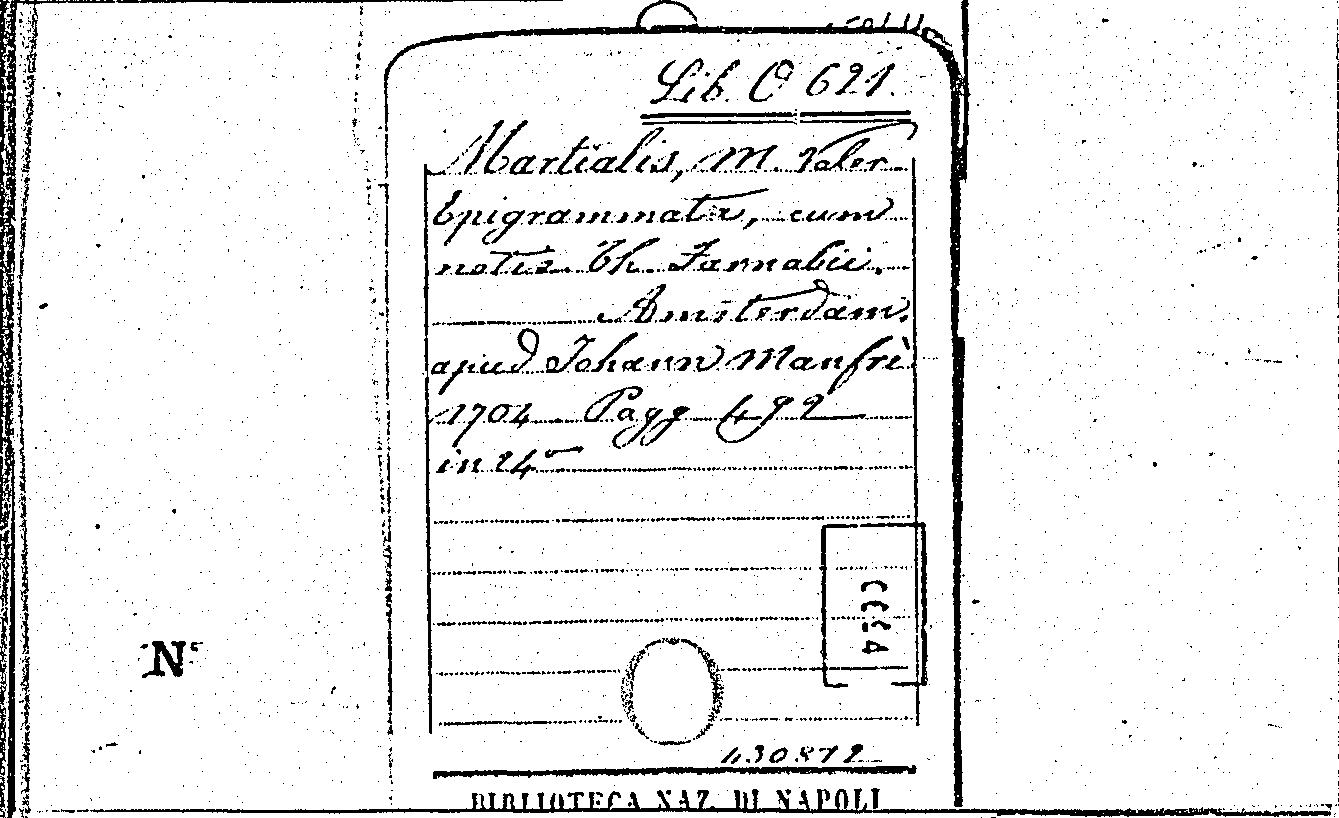 Lib. O 621.
Martialis, M. Valer.
Epigrammata, cum
notis Th. Farnabii.
Amsterdam.
apud Johann Manfrè
1704. Pagg 492
in 24º
Nº
430872
BIBLIOTECA NAZ. DI NAPOLI